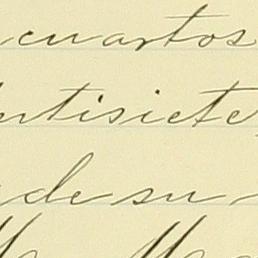 cuartos
ntisiete
de su